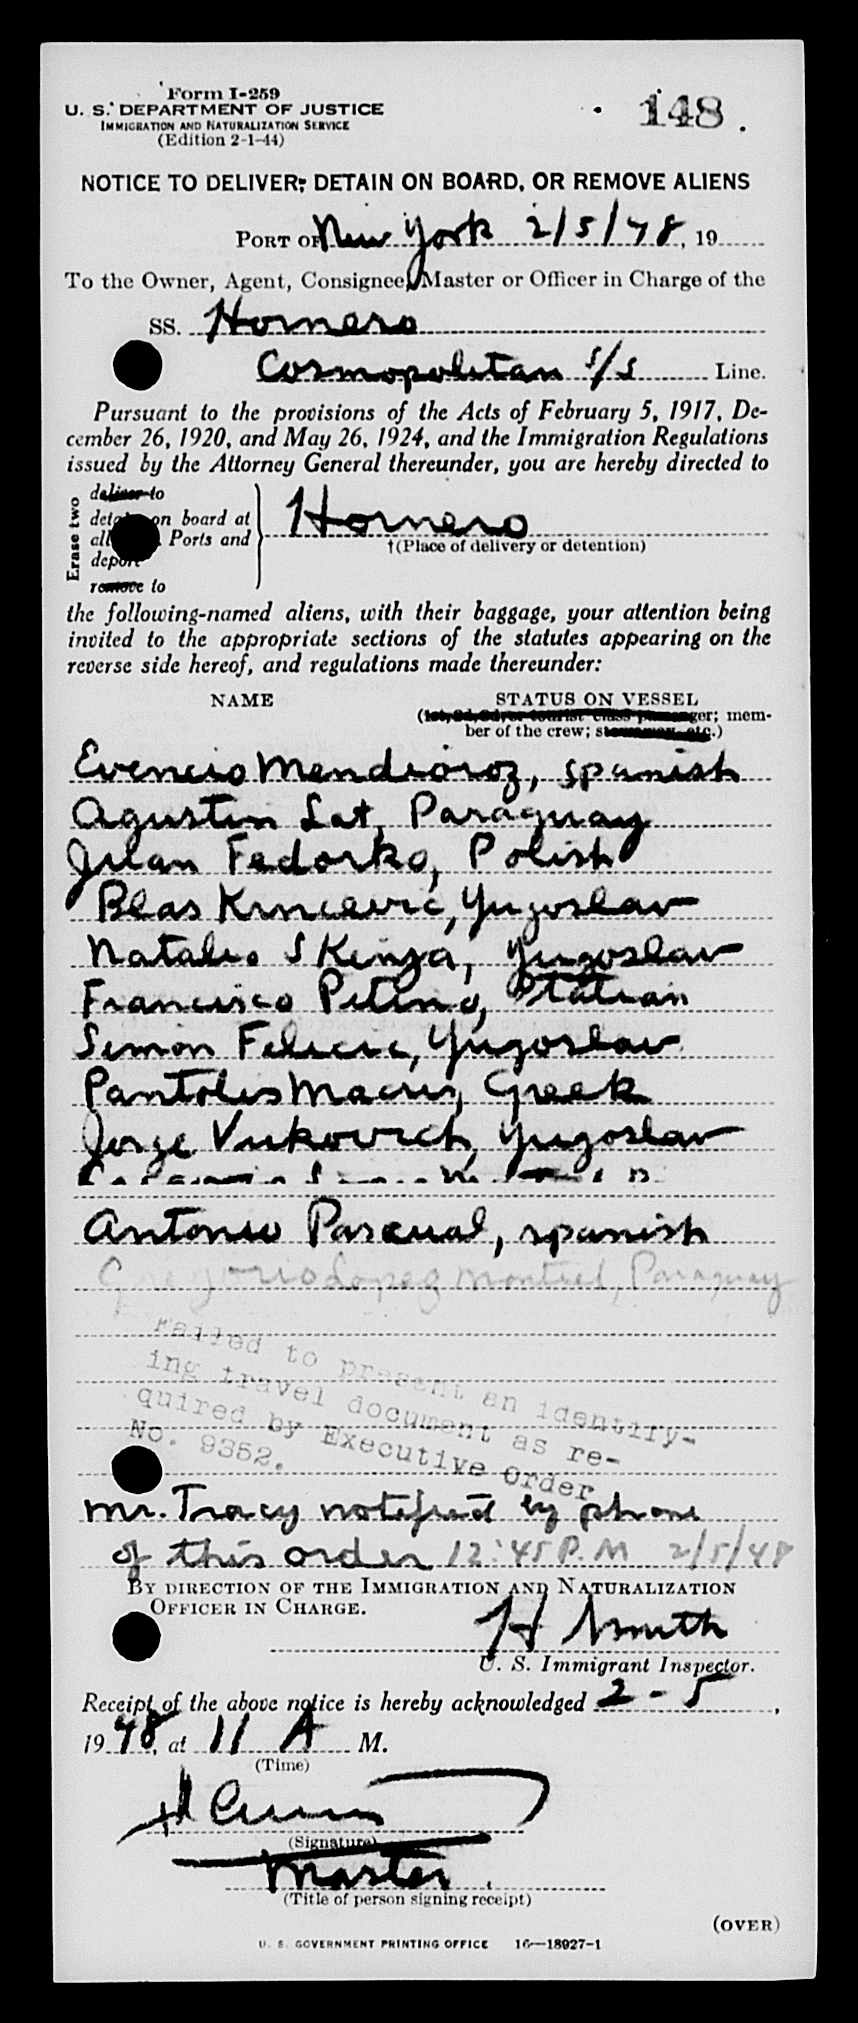 Form I-259
148
U. S. DEPARTMENT OF JUSTICE
IMMIGRATION AND NATURALIZATION SERVICE
(Edition 2-1-44)
NOTICE TO DELIVER, DETAIN ON BOARD, OR REMOVE ALIENS
PORT OF New York 2/5/48, 19
To the Owner, Agent, Consignee, Master or Officer in Charge of the
SS. Hornero
Cosmopolitan S/S Line.
Pursuant to the provisions of the Acts of February 5, 1917, De-
cember 26, 1920, and May 26, 1924, and the Immigration Regulations
issued by the Attorney General thereunder, you are hereby directed to
Erase two
deliver to
detain on board at
all Ports and
deport
remove to
Hornero
†(Place of delivery or detention)
the following-named aliens, with their baggage, your attention being
invited to the appropriate sections of the statutes appearing on the
reverse side hereof, and regulations made thereunder:
NAME STATUS ON VESSEL
(1st, 2d, 3d, or tourist class passenger; mem-
ber of the crew; stowaway, etc.)
Evencio Mendioroz, spanish
Agustin Lat, Paraguay
Juan Fedorko, Polish
Blas Krncevic, Yugoslav
Natalio Skinza, Yugoslav
Francisco Pitino, Italian
Simon Felicic, Yugoslav
Pantolis Macris, Greek
Jorge Vukovich, Yugoslav
Antonio Pascual, spanish
Gregorio Lopez Montiel, Paraguay
Failed to present an identify-
ing travel document as re-
quired by Executive Order
No. 9352.
Mr. Tracy notified by phone
of this order 12:45 P.M 2/5/48
BY DIRECTION OF THE IMMIGRATION AND NATURALIZATION
OFFICER IN CHARGE.
H Smith
U. S. Immigrant Inspector.
Receipt of the above notice is hereby acknowledged 2-5,
1948, at 11 A M.
(Time)
(Signature)
Master
(Title of person signing receipt)
(OVER)
U. S. GOVERNMENT PRINTING OFFICE 16—18927-1